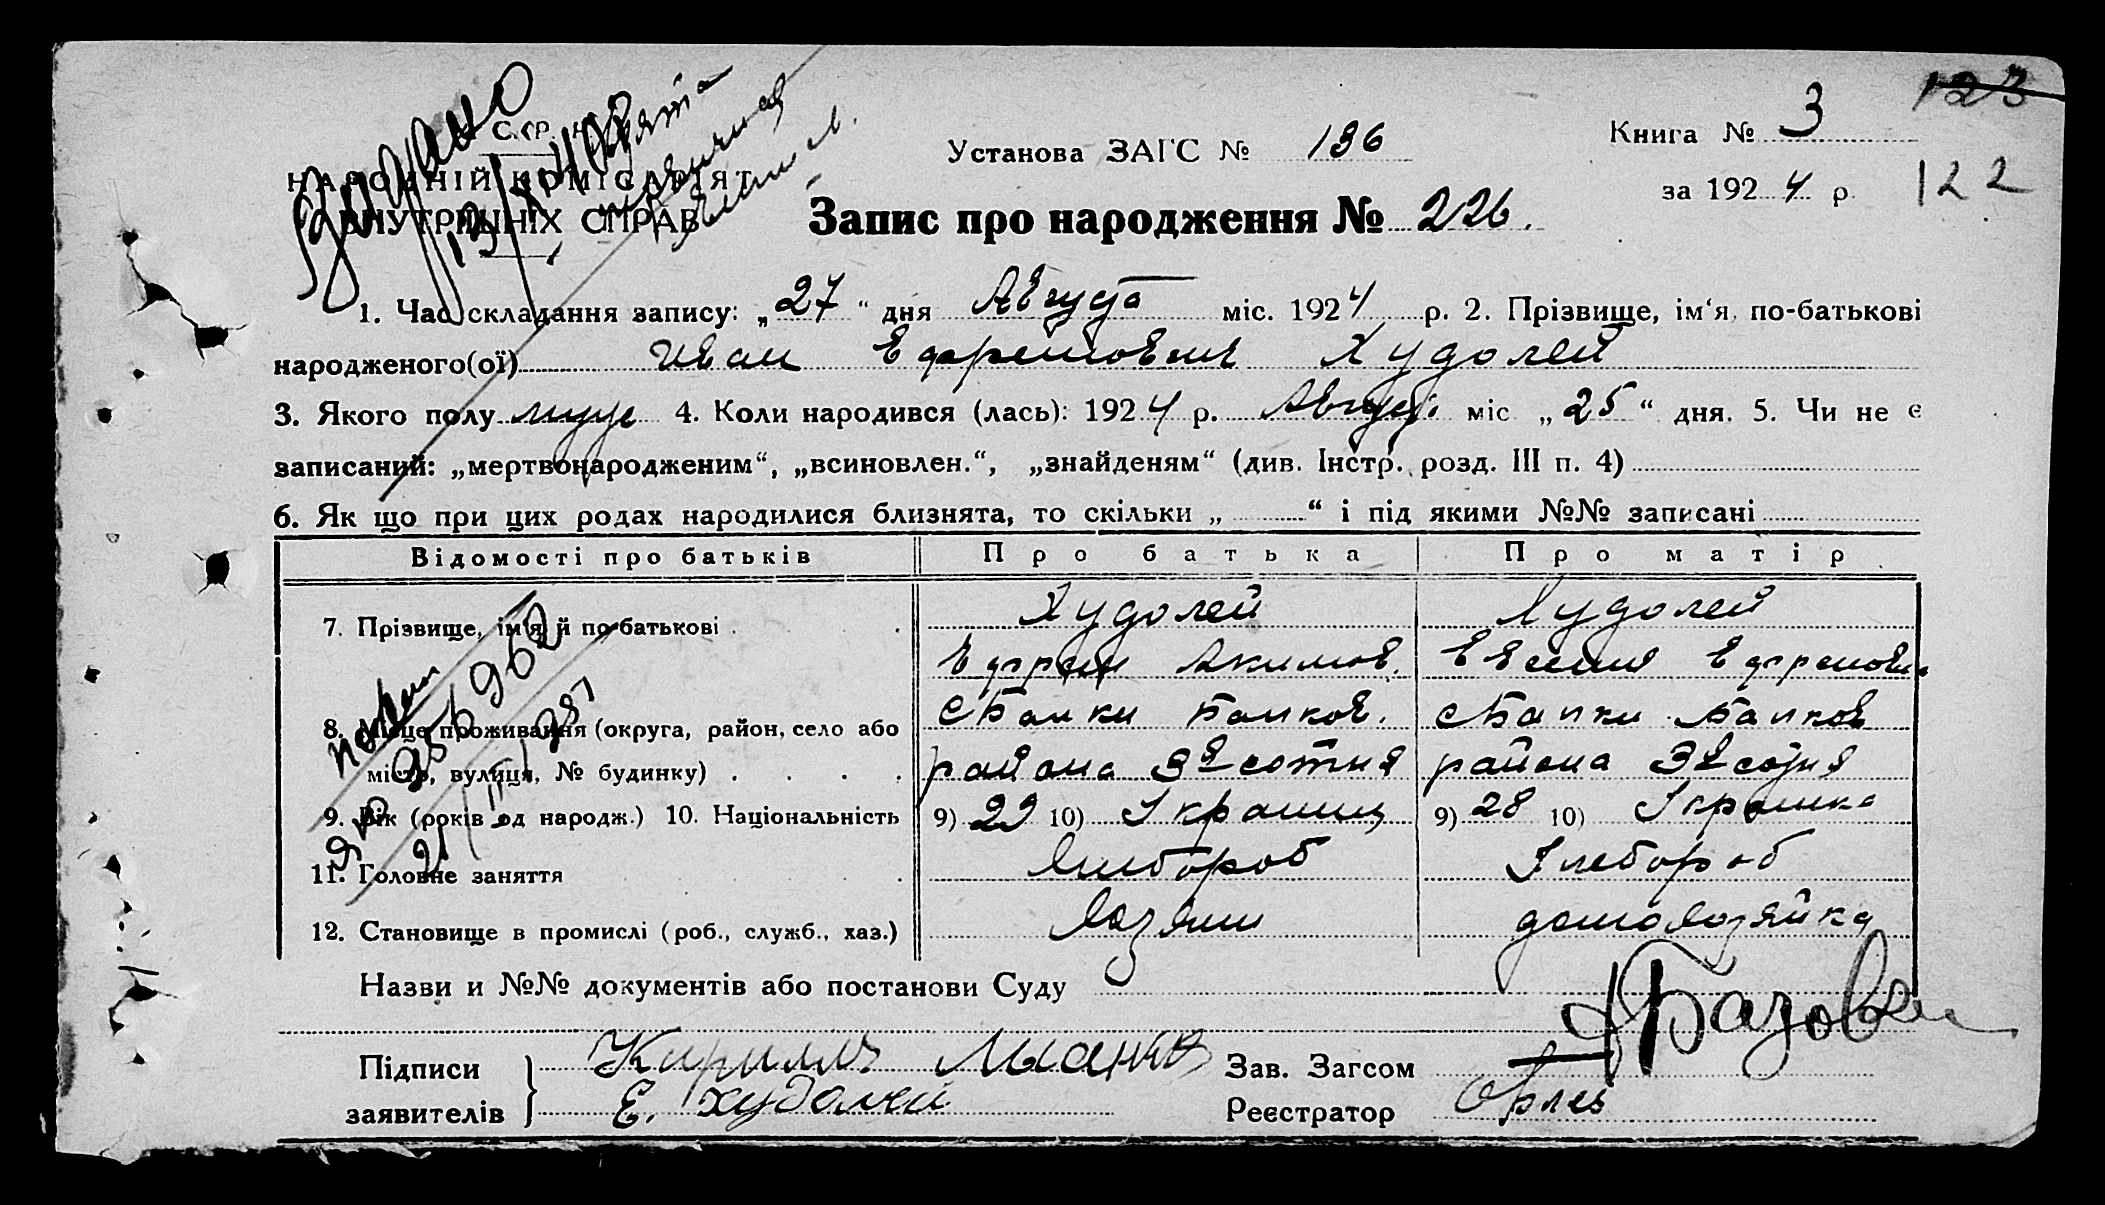 Видано
123
С.С.Р.
Установа ЗАГС № 136
Книга № 3
НАРОДНІЙ КОМІСАРІЯТ
за 1924 р.
122
ВНУТРІШНІХ СПРАВ
Запис про народження № 226.
1. Час складання запису: „27“ дня Августа міс. 1924 р. 2. Прізвище, ім'я, по-батькові
народженого(ої) Иван Ефремович Худолей
3. Якого полу муж 4. Коли народився (лась): 1924 р. Август міс „25“ дня. 5. Чи не є
записаний: „мертвонародженим“, „всиновлен.“, „знайденям“ (див. Інстр. розд. III п. 4)
6. Як що при цих родах народилися близнята, то скільки „ “ і під якими №№ записані
Відомості про батьків Про батька Про матір
7. Прізвище, ім'я й по-батькові Худолей Худолей
Ефрем Акимов. Евгения Ефремовна
8. Місце проживання (округа, район, село або с Балки Балков. с Балки Балков
місто, вулиця, № будинку) района 3я сотня района 3я сотня
9. Вік (років од народж.) 10. Національність 9) 29 10) Украинц 9) 28 10) Украинка
11. Головне заняття Хлебороб Хлебороб
12. Становище в промислі (роб., служб., хаз.) Хозяин домохозяйка
Назви и №№ документів або постанови Суду
Підписи Кирилл Зав. Загсом
заявителів Е. Худолей Реєстратор